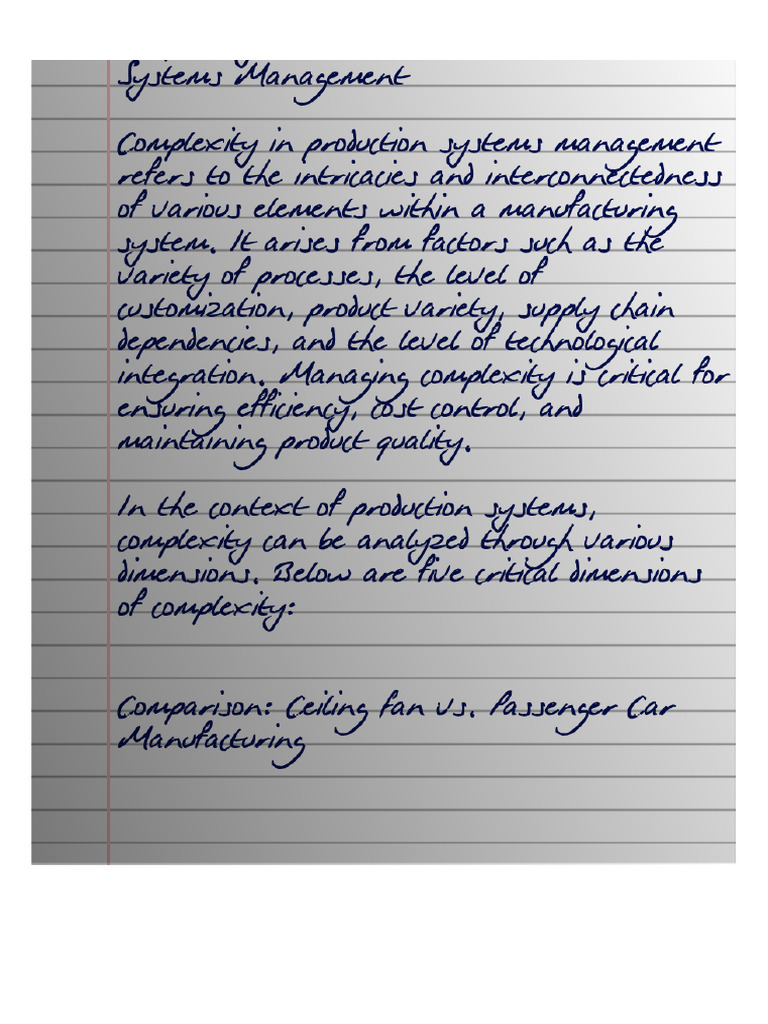 Systems Management
Complexity in production systems management
refers to the intricacies and interconnectedness
of various elements within a manufacturing
system. It arises from factors such as the
variety of processes, the level of
customization, product variety, supply chain
dependencies, and the level of technological
integration. Managing complexity is critical for
ensuring efficiency, cost control, and
maintaining product quality.
In the context of production systems,
complexity can be analyzed through various
dimensions. Below are five critical dimensions
of complexity:
Comparison: Ceiling Fan vs. Passenger Car
Manufacturing